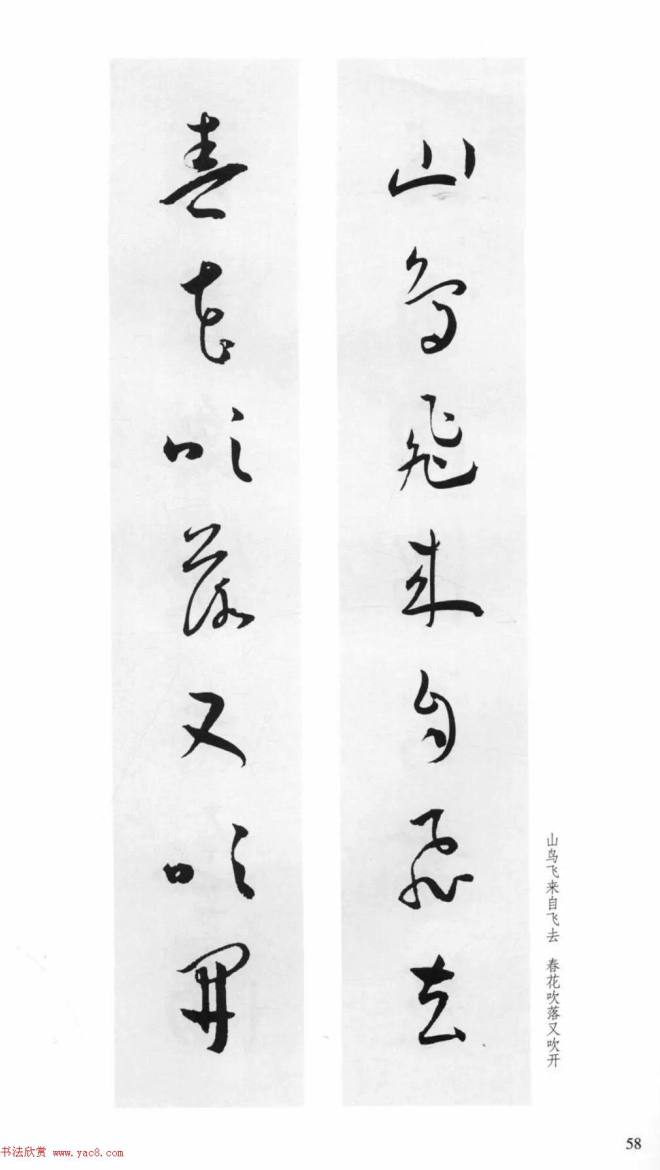 山鸟飞来自飞去
春花吹落又吹开
山鸟飞来自飞去 春花吹落又吹开
58
书法欣赏 www.yac8.com